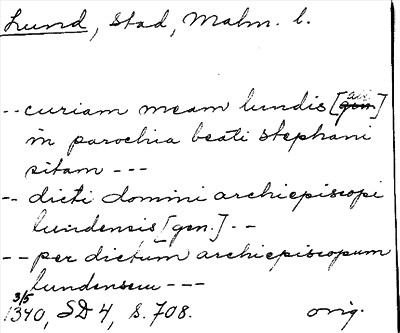 Lund, stad, Malm. l.
-- curiam meam lundis [avi]
in parochia beati stephani
sitam ---
-- dicti domini archiepiscopi
lundensis [gen.] --
-- per dictum archiepiscopum
lundensem ---
3/5
1340, SD 4, s. 708. orig.